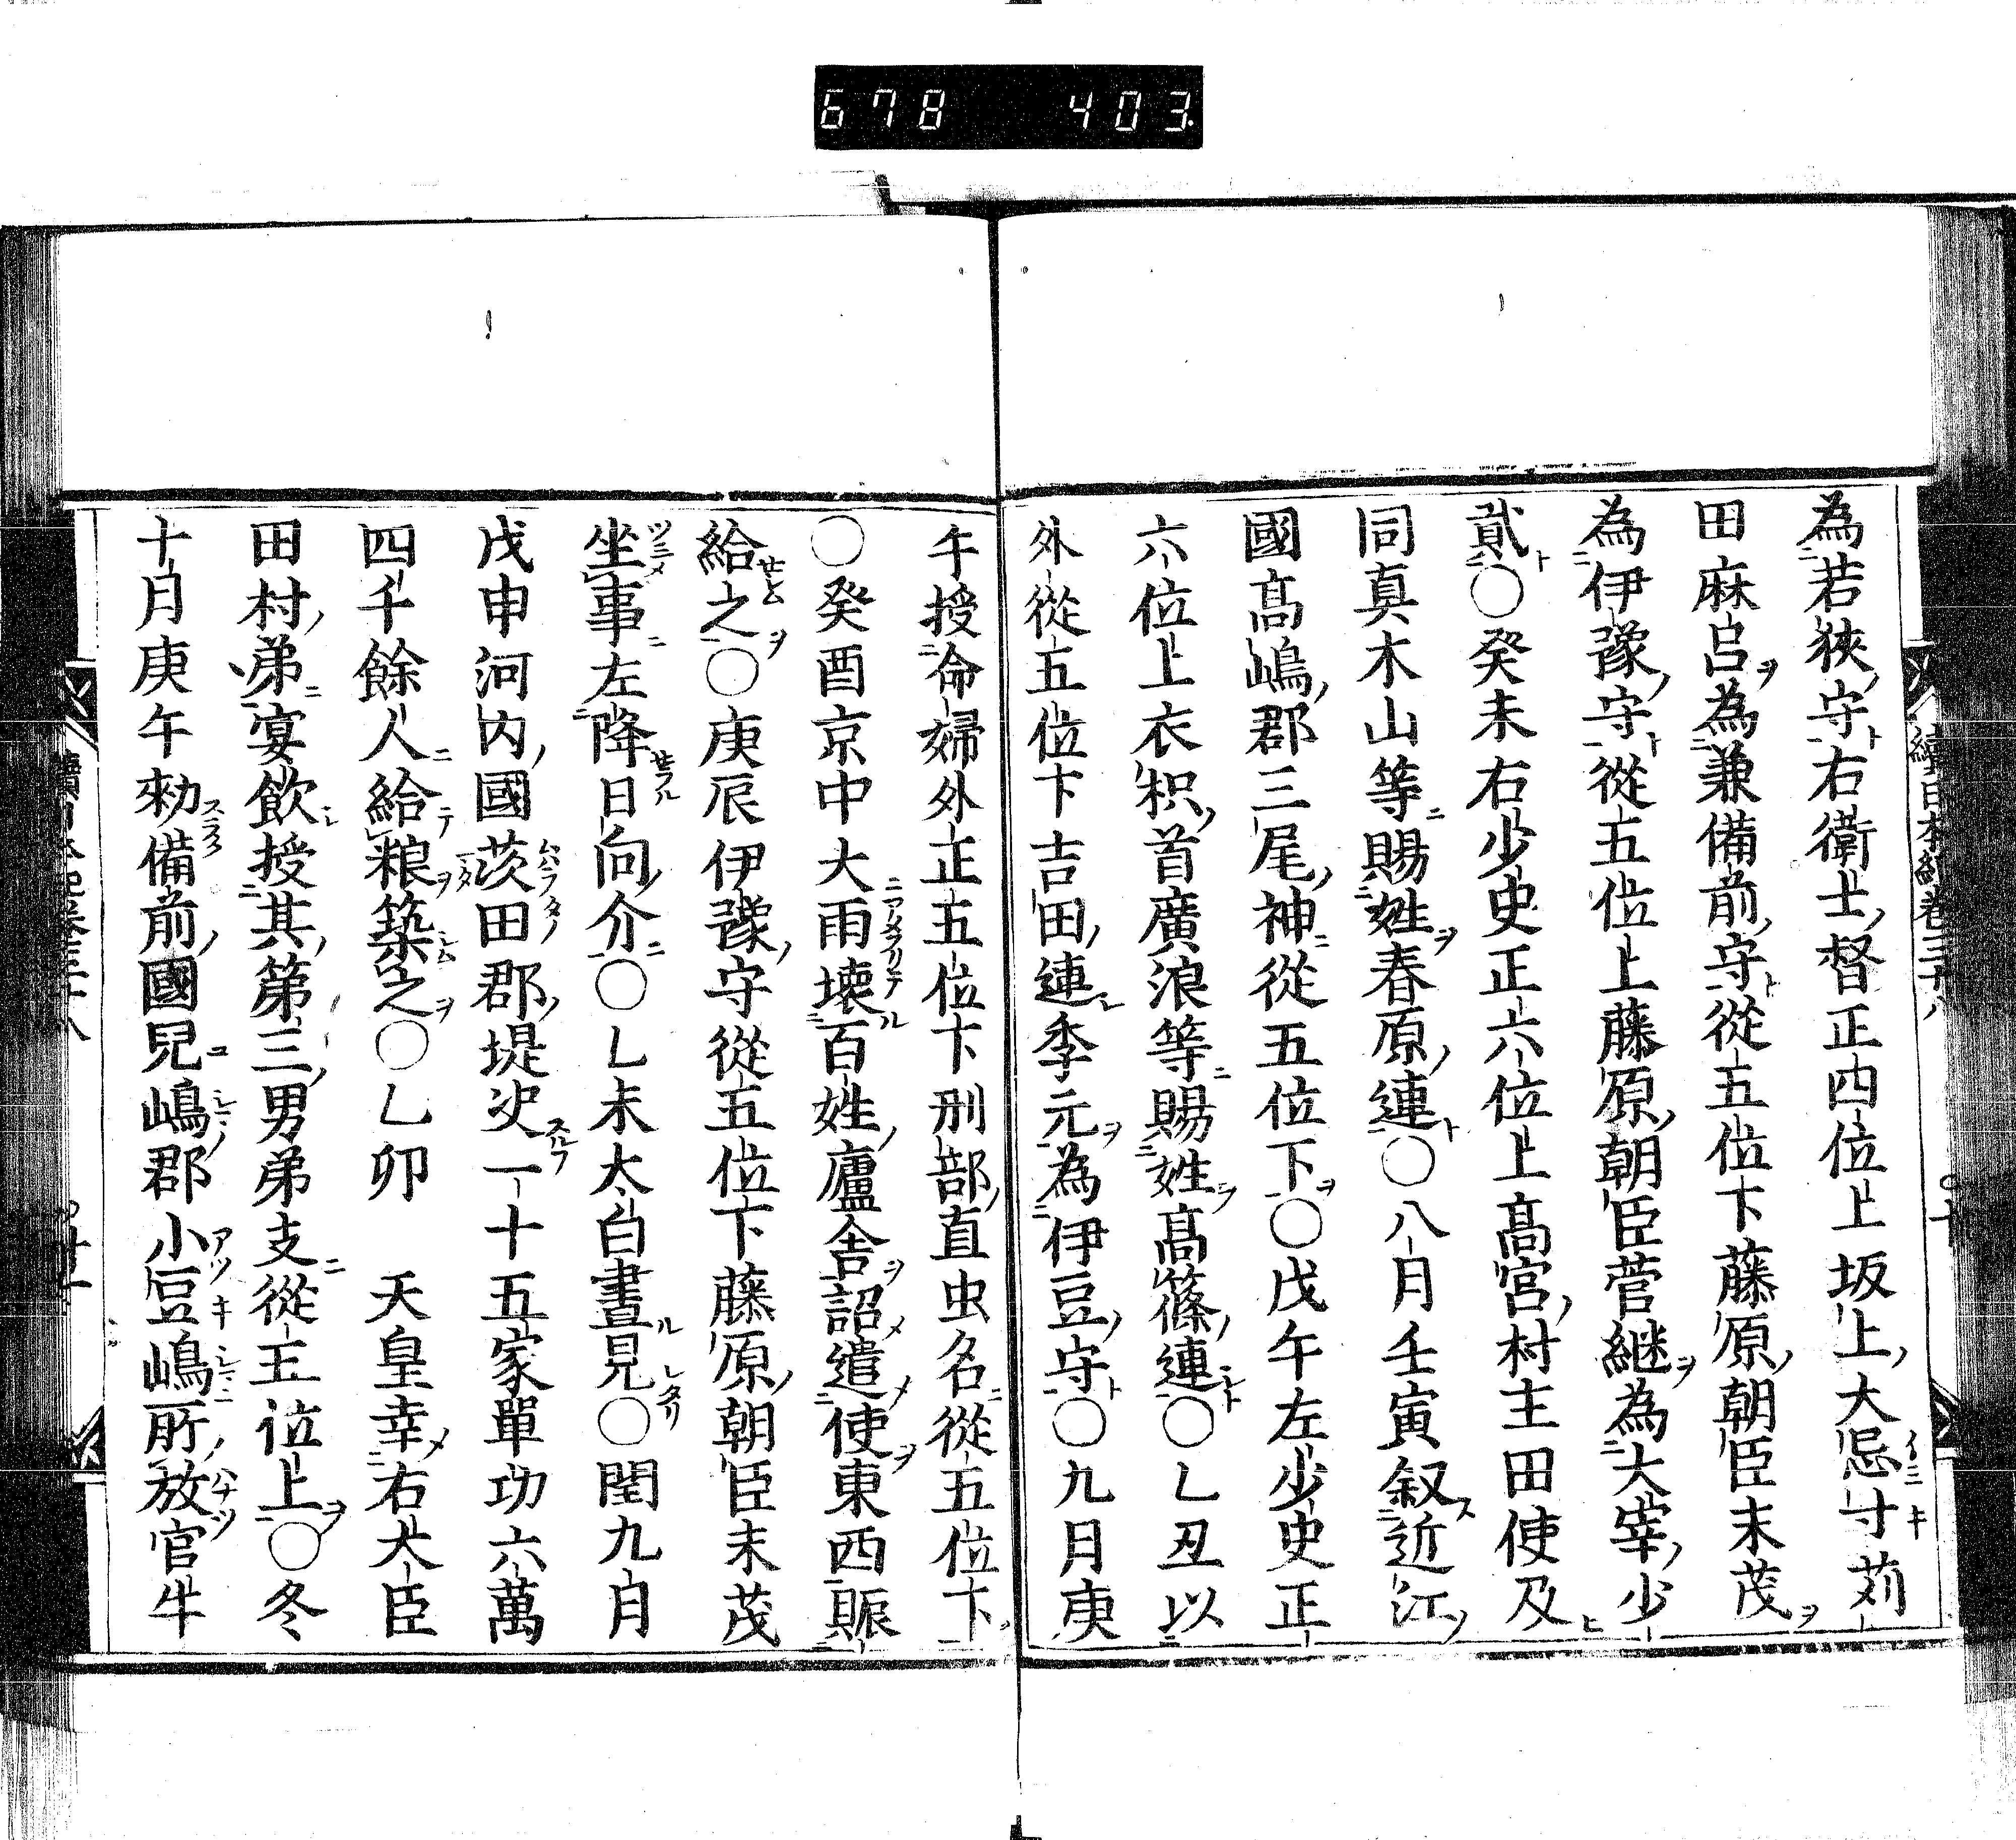 678 403
為若狹守右衛士督正四位上坂上大忌寸苅
田麻呂為兼備前守從五位下藤原朝臣末茂
為伊豫守從五位上藤原朝臣菅継為大宰少
貳○癸未右少史正六位上髙宮村主田使及
同真木山等賜姓春原連○八月壬寅叙近江
國髙嶋郡三尾神從五位下○戊午左少史正
六位上衣枳首廣浪等賜姓髙篠連○乙丑以
外從五位下吉田連季元為伊豆守○九月庚
午授命婦外正五位下刑部直虫名從五位下
○癸酉京中大雨壊百姓廬舎詔遣使東西賑
給之○庚辰伊豫守從五位下藤原朝臣末茂
坐事左降日向介○乙未太白晝見○閏九月
戊申河内國茨田郡堤决一十五家單功六萬
四千餘人給粮築之○乙卯　天皇幸右大臣
田村弟宴飲授其第三男弟支從五位上○冬
十月庚午勑備前國兒嶋郡小豆嶋所放官牛